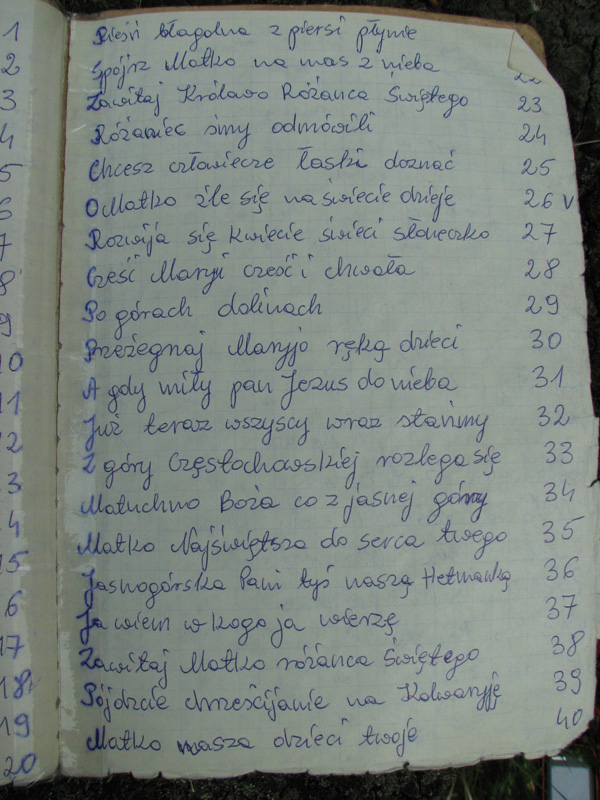 1 Pieśń błagalna z piersi płynie
2 Spójrz Matko na nas z nieba
3 Zawitaj Królowo Różańca Świętego 23
4 Różaniec śmy odmówili 24
5 Chcesz człowiecze łaski doznać 25
6 O Matko źle się na świecie dzieje 26 v
7 Rozwija się kwiecie świeci słoneczko 27
8 Cześć Maryi cześć i chwała 28
9 Po górach dolinach 29
10 Przeżegnaj Maryjo ręką dzieci 30
11 A gdy miły pan Jezus do nieba 31
12 Już teraz wszyscy wraz stańmy 32
13 Z góry Częstochowskiej rozlega się 33
14 Matuchno Boża co z jasnej góry 34
15 Matko Najświętsza do serca twego 35
16 Jasnogórska Pani tyś naszą Hetmanką 36
17 Ja wiem w kogo ja wierzę 37
18 Zawitaj Matko różańca Świętego 38
19 Pójdzcie chrześcijanie na Kalwaryję 39
20 Matko nasza dzieci twoje 40